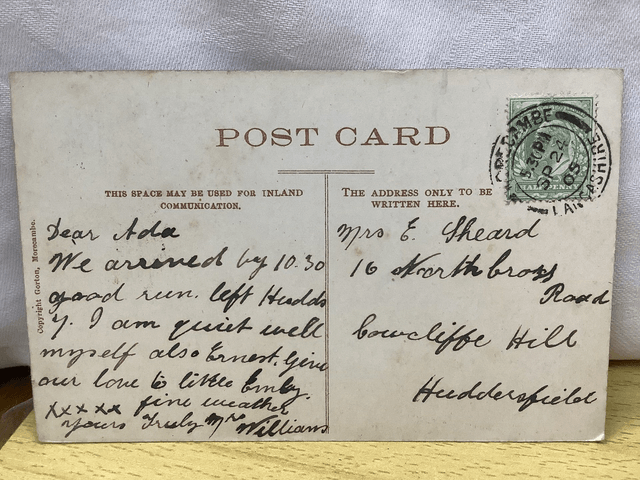 POST CARD
THIS SPACE MAY BE USED FOR INLAND
COMMUNICATION.
THE ADDRESS ONLY TO BE
WRITTEN HERE.
Copyright Gorton, Morecambe.
Dear Ada
We arrived by 10.30
good run. left Hudds
7. I am quiet well
myself also Ernest. Give
our love to little Emly.
xxxxx fine weather
yours Truly Mrs
Williams
Mrs E. Sheard
16 Northbrows
Road
Cowcliffe Hill
Huddersfield
MORECAMBE
PM
SP 24
03
LANCASHIRE
HALFPENNY